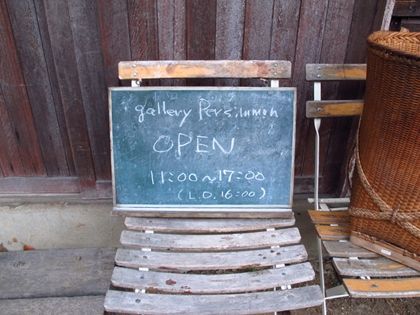 gallery Persimmon
OPEN
11:00~17:00
(L.O. 16:00)